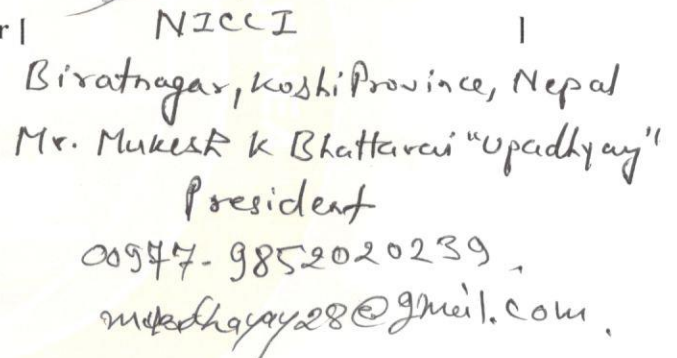 r |
NICCI |
Biratnagar, Koshi Province, Nepal
Mr. Mukesh K Bhattarai "Upadhyay"
President
00977-9852020239.
mupadhayay28@gmail.com.